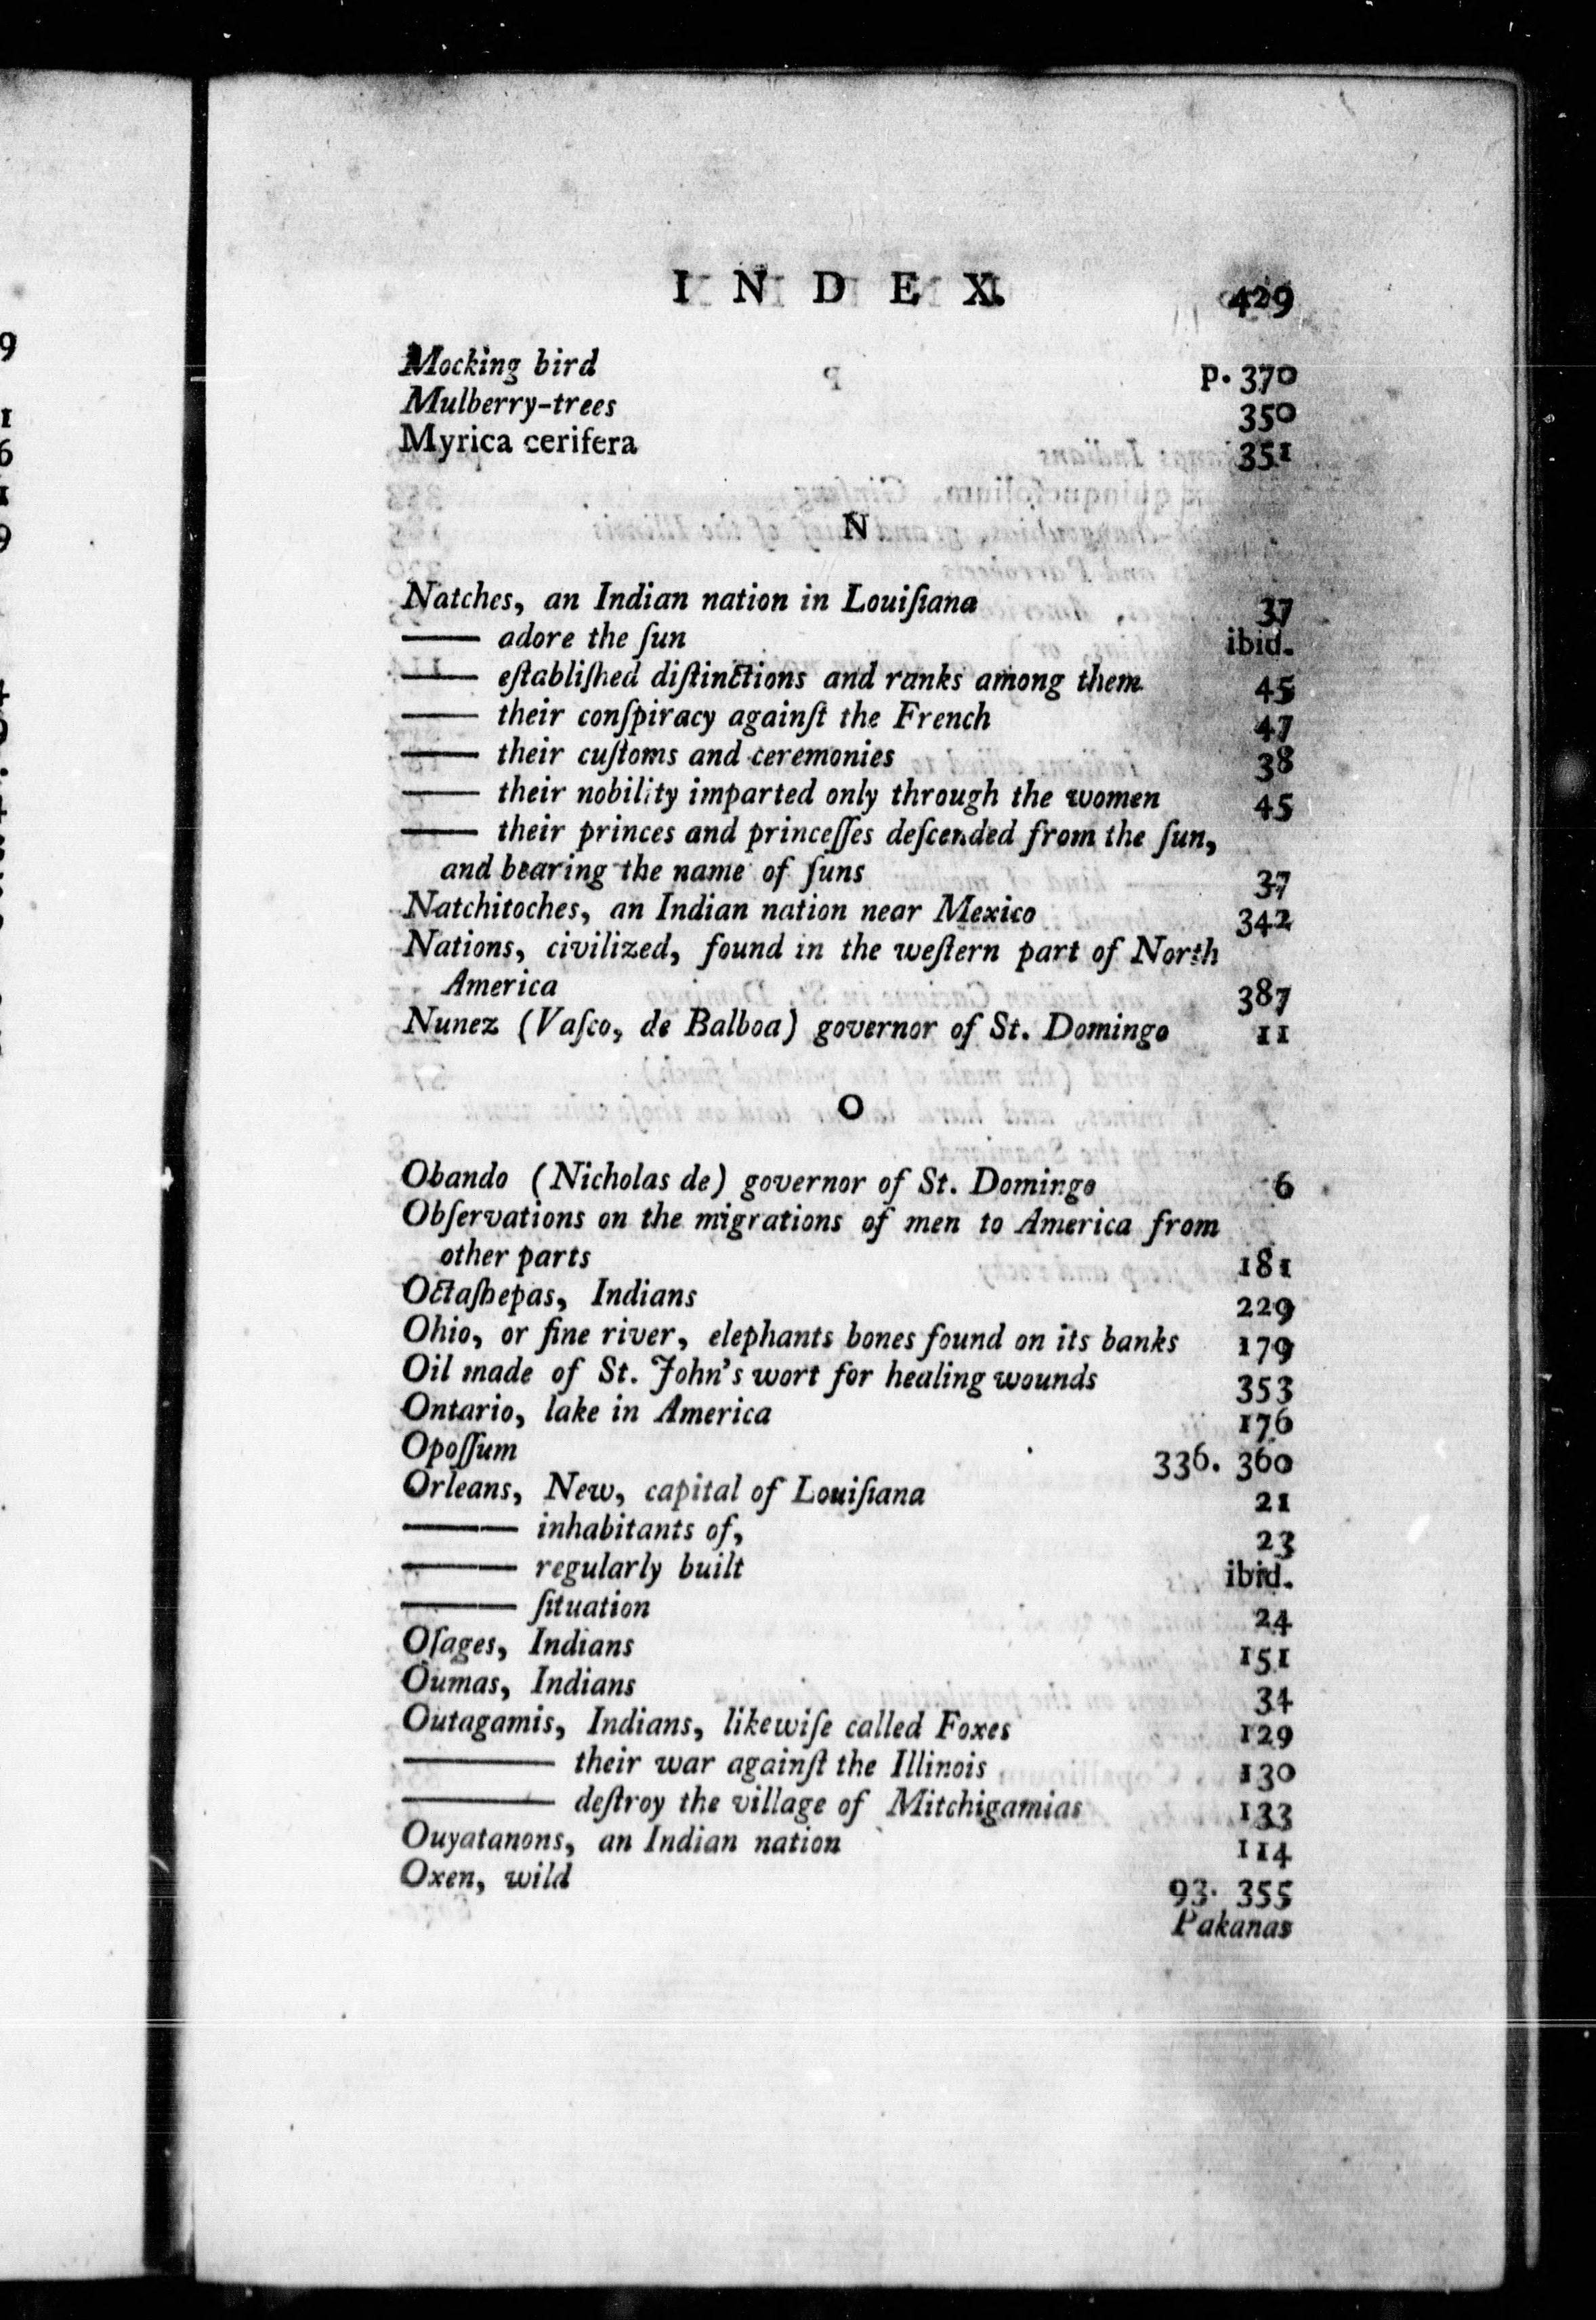 INDEX. 429
Mocking bird p. 370
Mulberry-trees 350
Myrica cerifera 351
N
Natches, an Indian nation in Louiſiana 37
—— adore the ſun ibid.
—— eſtabliſhed diſtinctions and ranks among them 45
—— their conſpiracy againſt the French 47
—— their cuſtoms and ceremonies 38
—— their nobility imparted only through the women 45
—— their princes and princeſſes deſcended from the ſun,
and bearing the name of ſuns 37
Natchitoches, an Indian nation near Mexico 342
Nations, civilized, found in the weſtern part of North
America 387
Nunez (Vaſco, de Balboa) governor of St. Domingo 11
O
Obando (Nicholas de) governor of St. Domingo 6
Obſervations on the migrations of men to America from
other parts 181
Octaſhepas, Indians 229
Ohio, or fine river, elephants bones found on its banks 179
Oil made of St. John's wort for healing wounds 353
Ontario, lake in America 176
Opoſſum 336. 360
Orleans, New, capital of Louiſiana 21
——— inhabitants of, 23
——— regularly built ibid.
——— ſituation 24
Oſages, Indians 151
Oumas, Indians 34
Outagamis, Indians, likewiſe called Foxes 129
———— their war againſt the Illinois 130
———— deſtroy the village of Mitchigamias 133
Ouyatanons, an Indian nation 114
Oxen, wild 93. 355
Pakanas